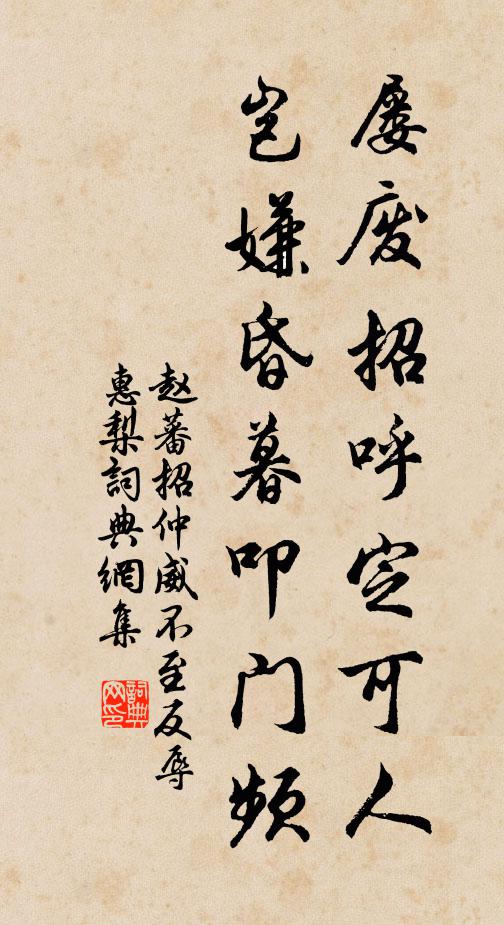 屡废招呼定可人
岂嫌昏暮叩门频
赵蕃招仲威不至反辱
惠梨詞典網集
詞典网印